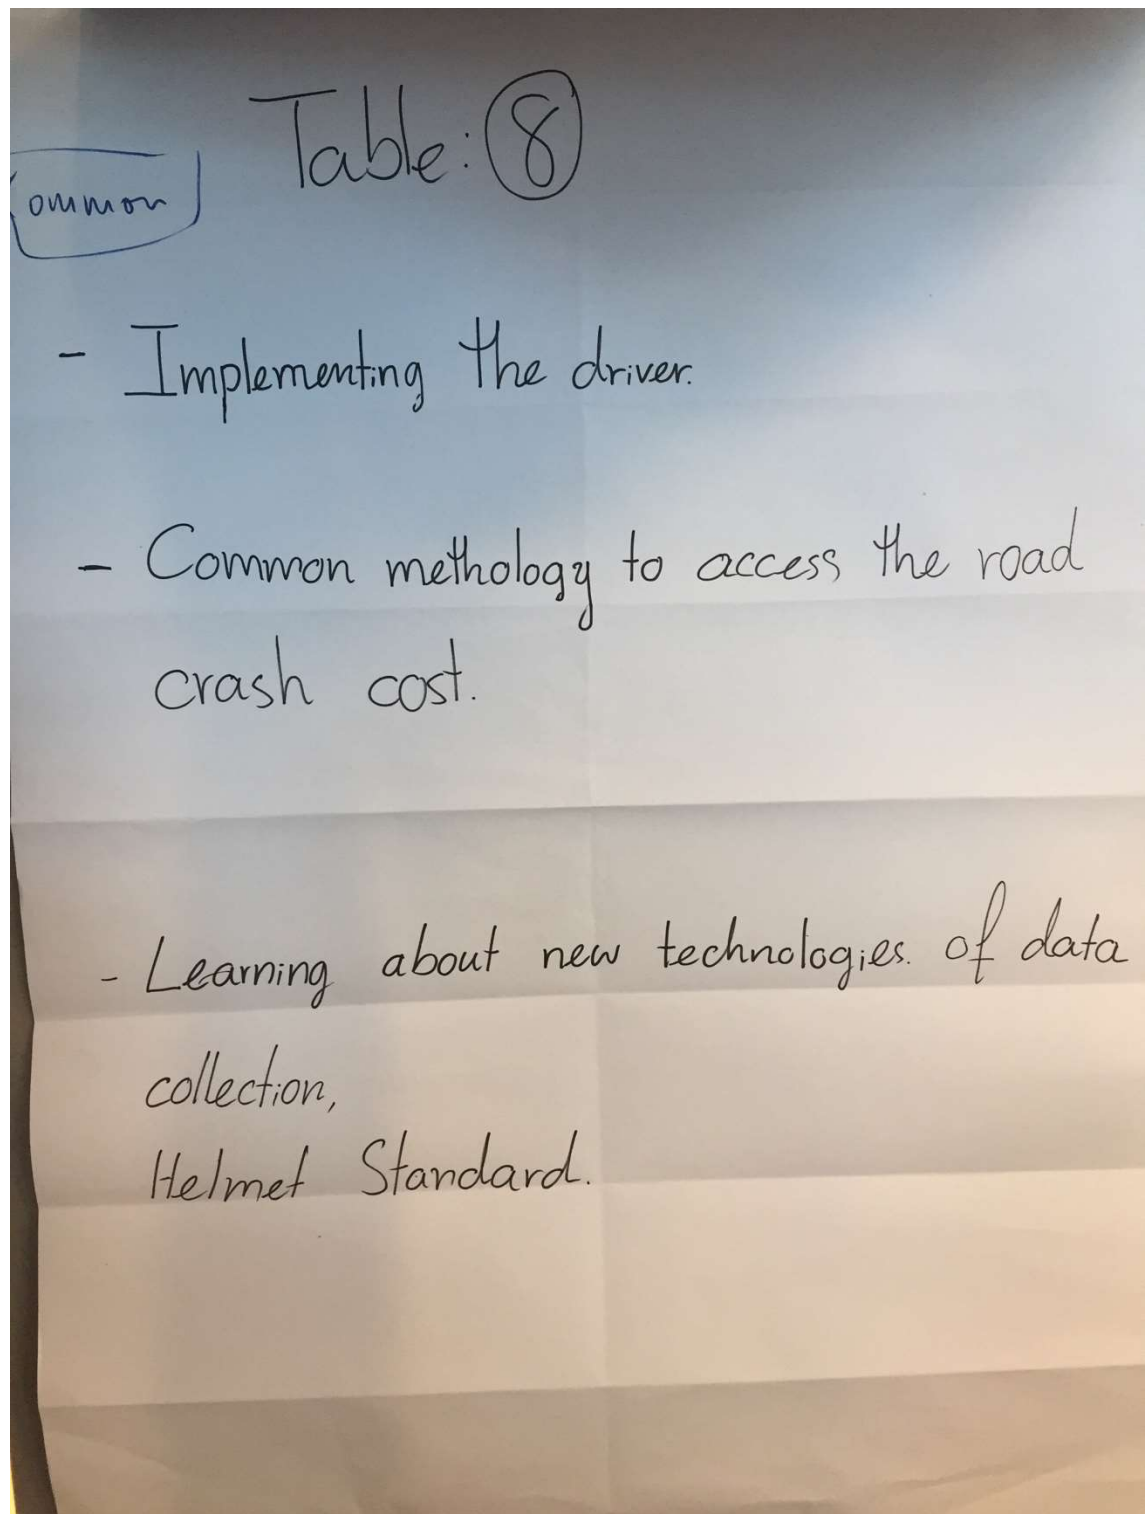 Table: 8
ommon
- Implementing the driver.
- Common methology to access the road
crash cost.
- Learning about new technologies. of data
collection,
Helmet Standard.